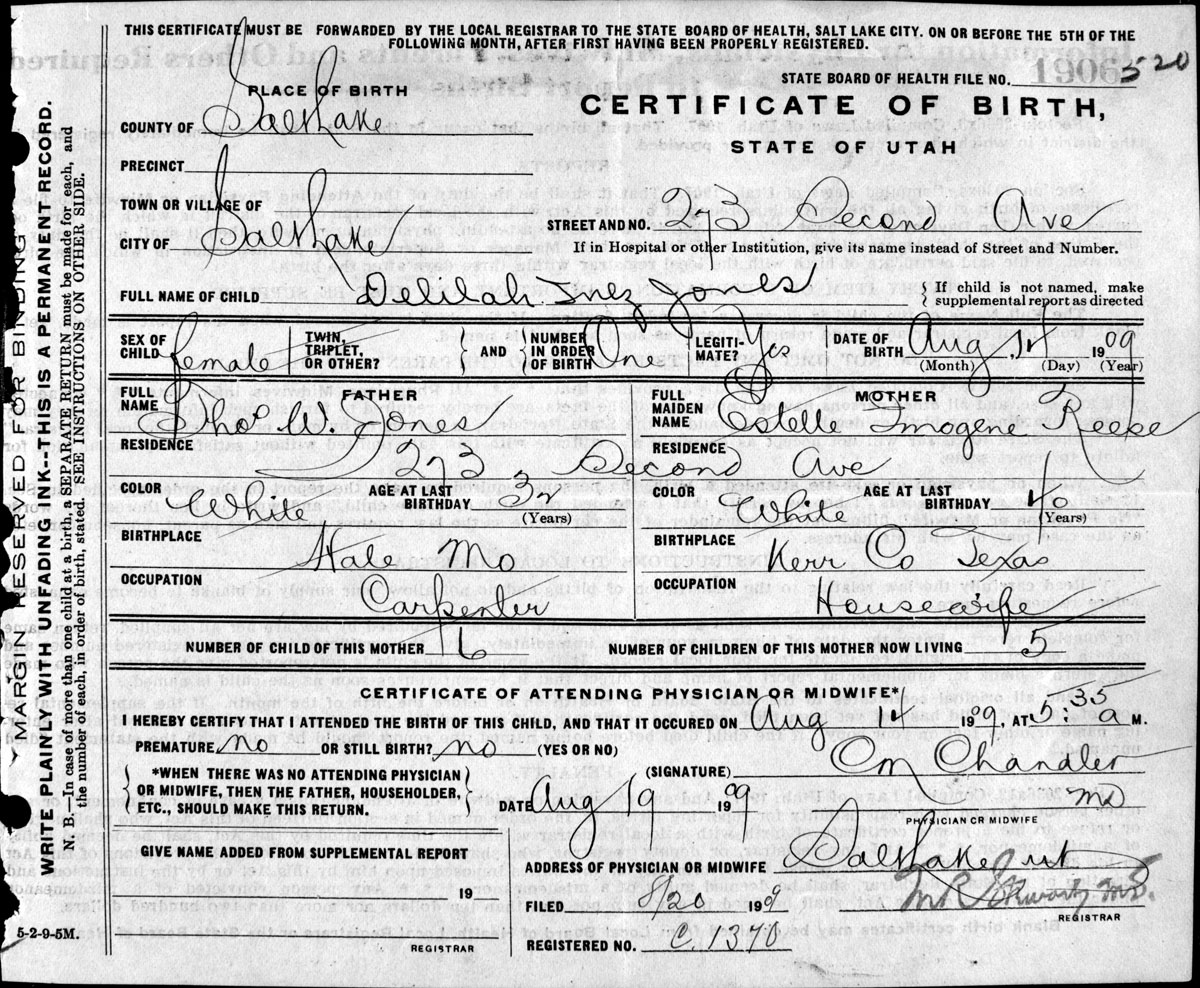 THIS CERTIFICATE MUST BE FORWARDED BY THE LOCAL REGISTRAR TO THE STATE BOARD OF HEALTH, SALT LAKE CITY. ON OR BEFORE THE 5TH OF THE
FOLLOWING MONTH, AFTER FIRST HAVING BEEN PROPERLY REGISTERED.
STATE BOARD OF HEALTH FILE NO. 1906 520
PLACE OF BIRTH
CERTIFICATE OF BIRTH,
STATE OF UTAH
COUNTY OF Salt Lake
PRECINCT
TOWN OR VILLAGE OF
STREET AND NO. 273 Second Ave
CITY OF Salt Lake
If in Hospital or other Institution, give its name instead of Street and Number.
FULL NAME OF CHILD Delilah Inez Jones
{ If child is not named, make
supplemental report as directed
SEX OF CHILD female
TWIN, TRIPLET, OR OTHER?
AND
NUMBER IN ORDER OF BIRTH One
LEGITIMATE? Yes
DATE OF BIRTH Aug 14 1909
(Month) (Day) (Year)
FATHER
FULL NAME Tho W. Jones
MOTHER
FULL MAIDEN NAME Estelle Imogene Reese
RESIDENCE
RESIDENCE
273 Second Ave
COLOR White
AGE AT LAST BIRTHDAY 32
(Years)
COLOR White
AGE AT LAST BIRTHDAY 40
(Years)
BIRTHPLACE Hale Mo
BIRTHPLACE Kerr Co Texas
OCCUPATION Carpenter
OCCUPATION Housewife
NUMBER OF CHILD OF THIS MOTHER 6
NUMBER OF CHILDREN OF THIS MOTHER NOW LIVING 5
CERTIFICATE OF ATTENDING PHYSICIAN OR MIDWIFE*
I HEREBY CERTIFY THAT I ATTENDED THE BIRTH OF THIS CHILD, AND THAT IT OCCURED ON Aug 14 1909, AT 5:35 a M.
PREMATURE no OR STILL BIRTH? no (YES OR NO)
{ *WHEN THERE WAS NO ATTENDING PHYSICIAN
OR MIDWIFE, THEN THE FATHER, HOUSEHOLDER,
ETC., SHOULD MAKE THIS RETURN. }
(SIGNATURE) Cm Chandler
DATE Aug 19 1909
MD
PHYSICIAN OR MIDWIFE
GIVE NAME ADDED FROM SUPPLEMENTAL REPORT
ADDRESS OF PHYSICIAN OR MIDWIFE Salt Lake ut
19
FILED 8/20 1909
M.D.
REGISTRAR
REGISTRAR
REGISTERED NO. C. 1370
MARGIN RESERVED FOR BINDING
WRITE PLAINLY WITH UNFADING INK--THIS IS A PERMANENT RECORD.
N. B.—In case of more than one child at a birth, a SEPARATE RETURN must be made for each, and
the number of each, in order of birth, stated. SEE INSTRUCTIONS ON OTHER SIDE.
5-2-9-5M.